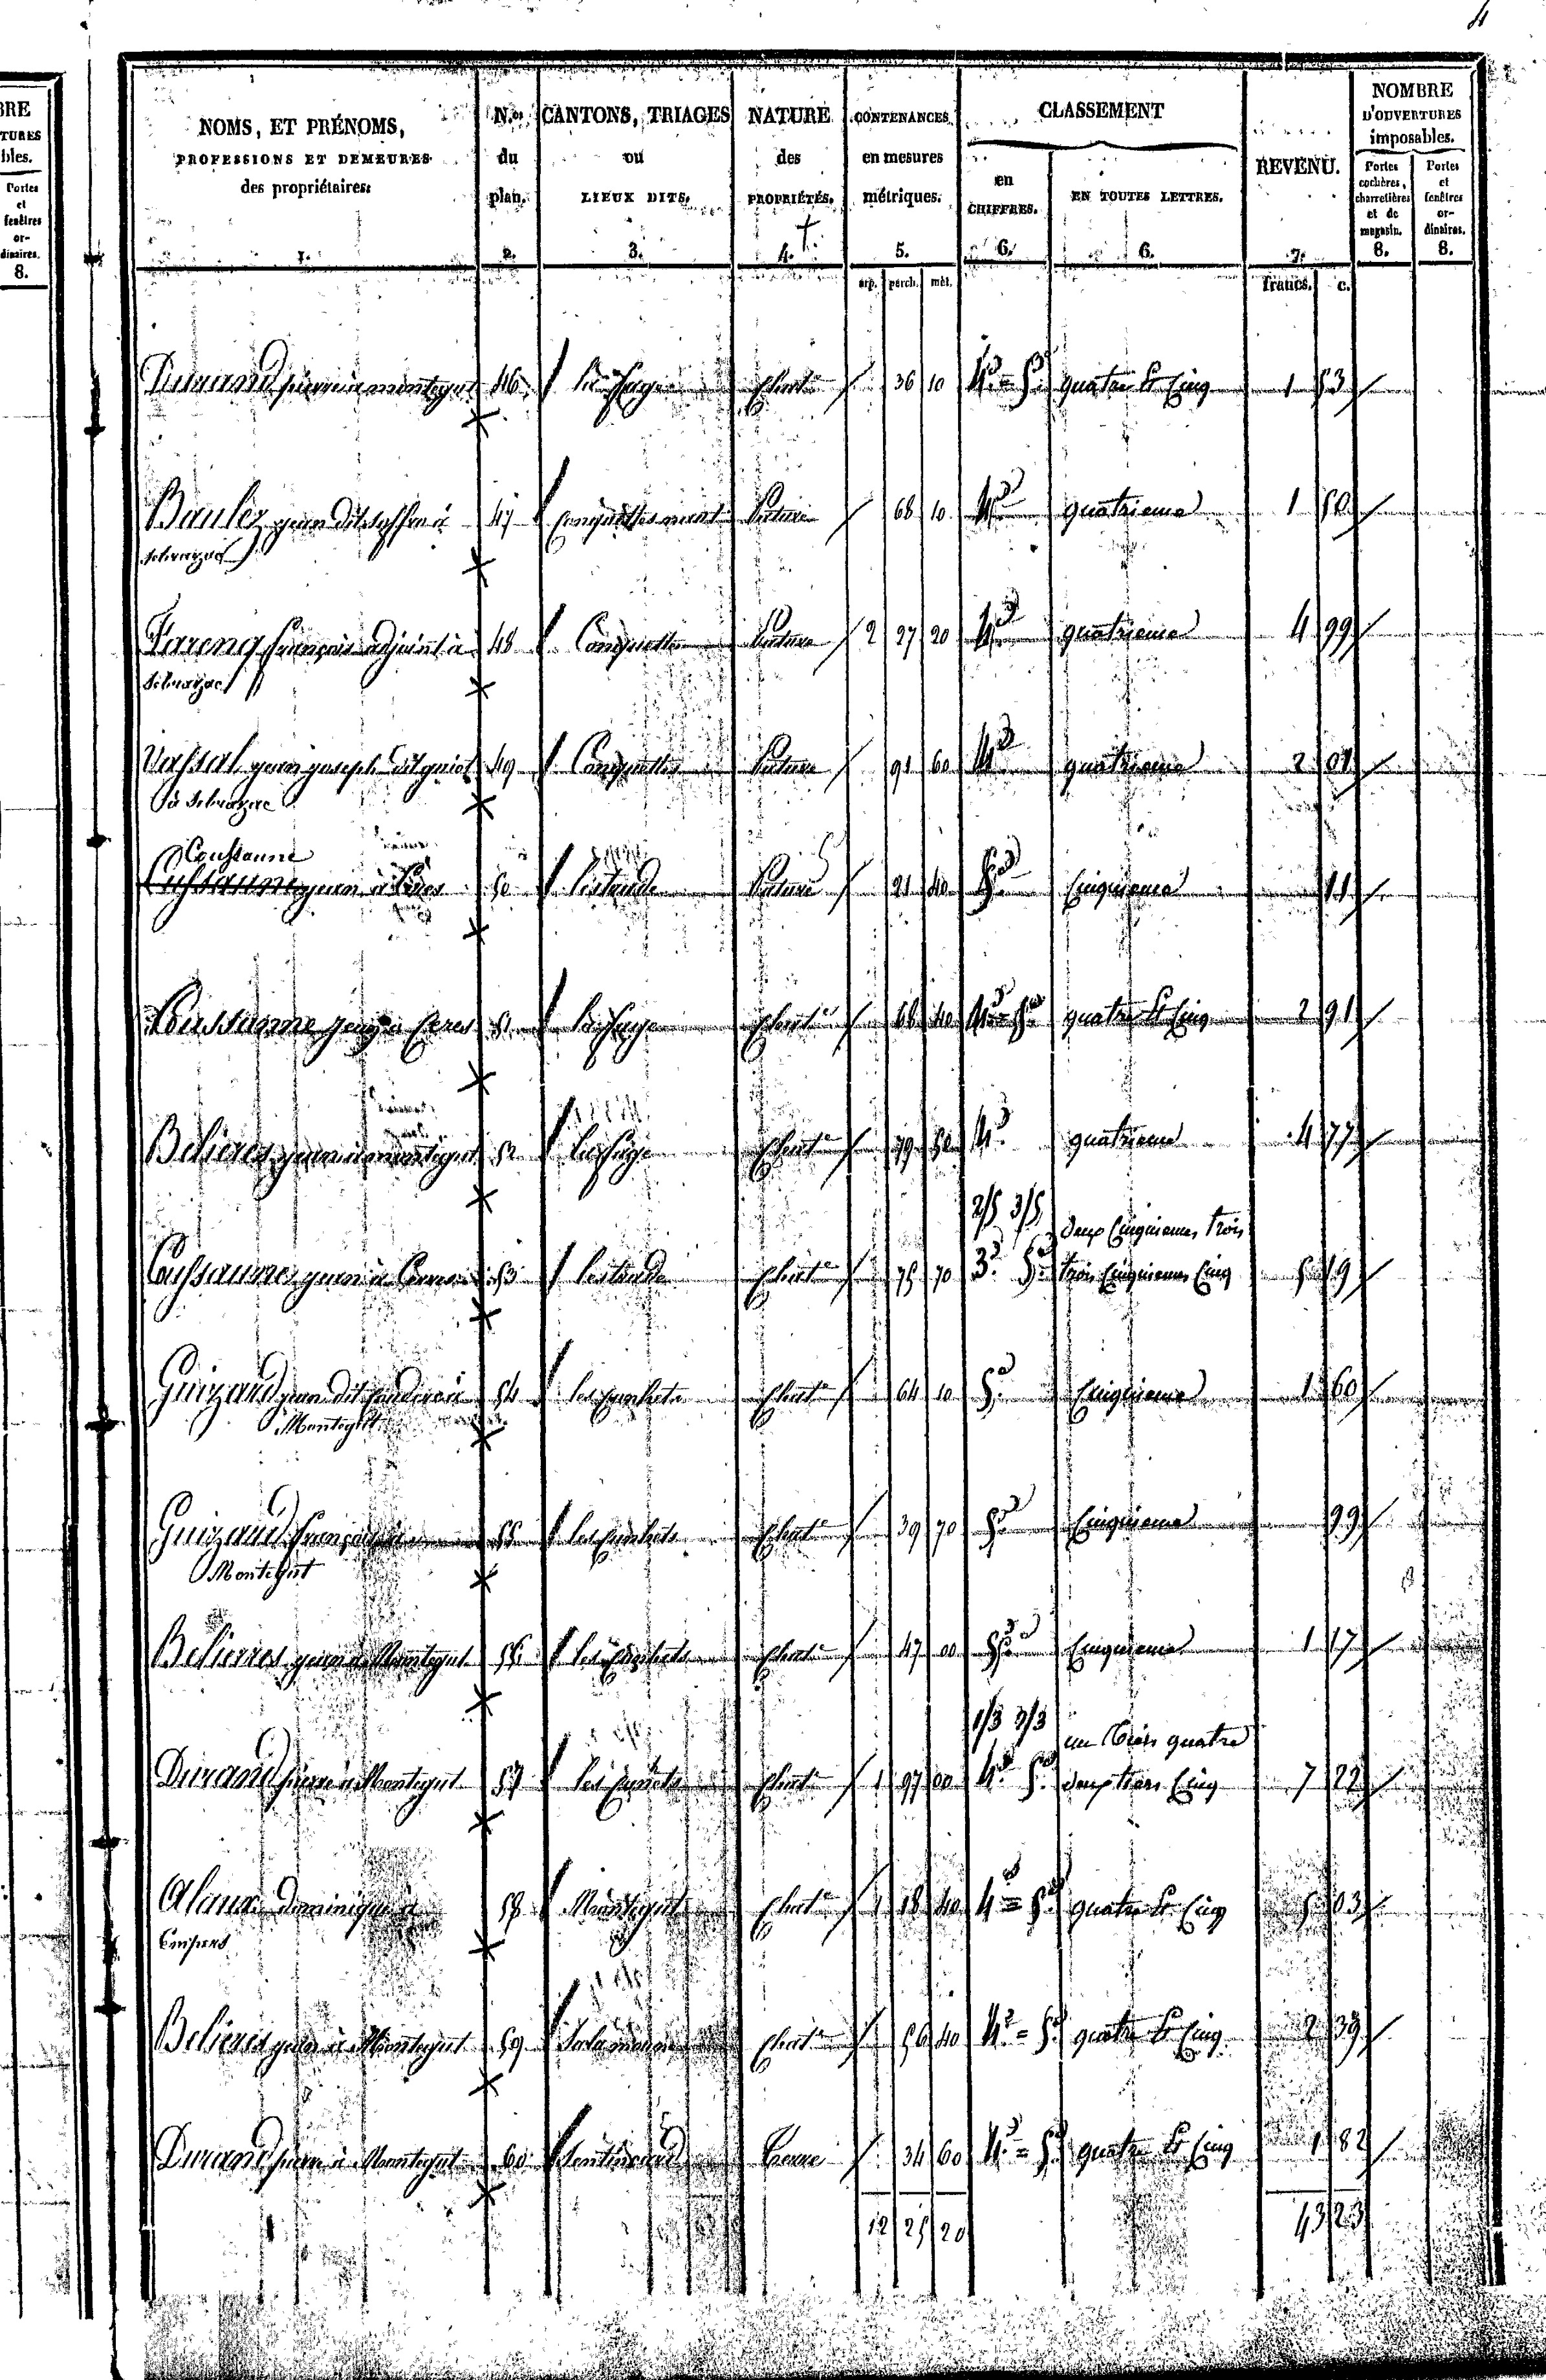 4
BRE
TURES
bles.
Portes
et
fenêtres
or-
dinaires.
8.
NOMS, ET PRÉNOMS,
PROFESSIONS ET DEMEURES
des propriétaires.
1.
N.os
du
plan.
2.
CANTONS, TRIAGES
ou
LIEUX DITS.
3.
NATURE
des
PROPRIÉTÉS.
4.
CONTENANCES
en mesures
métriques.
5.
CLASSEMENT
en
CHIFFRES.
6.
EN TOUTES LETTRES.
6.
REVENU.
7.
NOMBRE
D'OUVERTURES
imposables.
Portes
cochères,
charretières
et de
magasin.
8.
Portes
et
fenêtres
or-
dinaires.
8.
arp. perch. mèt. francs. c.
Durand pierre à montegut 46 36 10 4e = 5e quatre et Cinq 1 53
Baulez jean dit à 47 Conquettes Pature 68 10 4e quatrieme 1 50
Selvazac
Farenq françois adjoint à 48 Conquettes Pature 2 27 20 4e quatrieme 4 99
Selvazac
Vassal jean joseph dit 49 Conquettes Pature 91 60 4e quatrieme 2 01
à Selvazac
Coussanne
jean à 50 Pature 21 40 5e Cinquieme 11
Coussanne jean à 51 68 40 4e = 5e quatre et Cinq 2 91
Belieres jean à montegut 52 79 50 4e quatrieme 4 77
2/5 3/5 deux Cinquiemes trois
Coussanne jean à 53 75 70 3e 5e trois Cinquiemes Cinq 5 19
Guizaud jean dit à 54 les 64 10 5e Cinquieme 1 60
Montegut
Guizaud françois à 55 les 39 70 5e Cinquieme 99
Montegut
Belieres jean à Montegut 56 les 47 00 5e Cinquieme 1 17
1/3 2/3 un tiers quatre
Durand pierre à Montegut 57 les 1 97 00 4e 5e deux tiers Cinq 7 22
Alaux dominique à 58 Montegut 1 18 40 4e = 5e quatre et Cinq 5 03
Belieres jean à Montegut 59 56 40 4e = 5e quatre et Cinq 2 39
Durand pierre à Montegut 60 Terre 34 60 4e = 5e quatre et Cinq 1 82
12 25 20 43 23